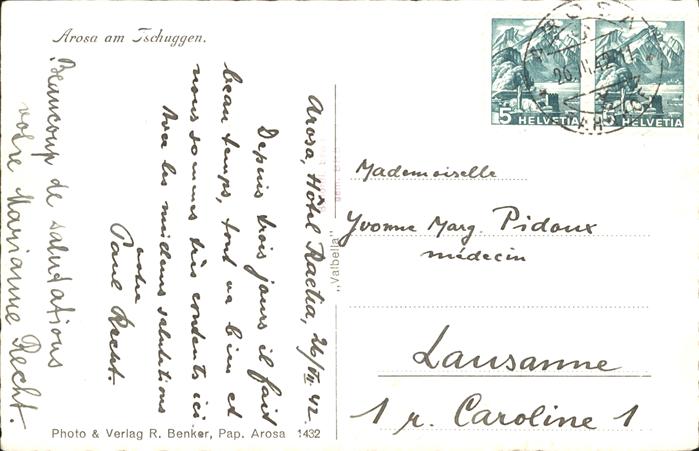 Arosa am Tschuggen.
Arosa, Hôtel Raetia, 26/VI 42.
Depuis trois jours il fait
beau temps, tout va bien et
nous sommes très contents ici
Avec les meilleures salutations
votre
Paul Recht.
Beaucoup de salutations
votre Marianne Recht.
Photo & Verlag R. Benker, Pap. Arosa 1432
„Valbella"
5 HELVETIA
5 HELVETIA
AROSA
Mademoiselle
Yvonne Marg. Pidoux
médecin
Lausanne
1 r. Caroline 1